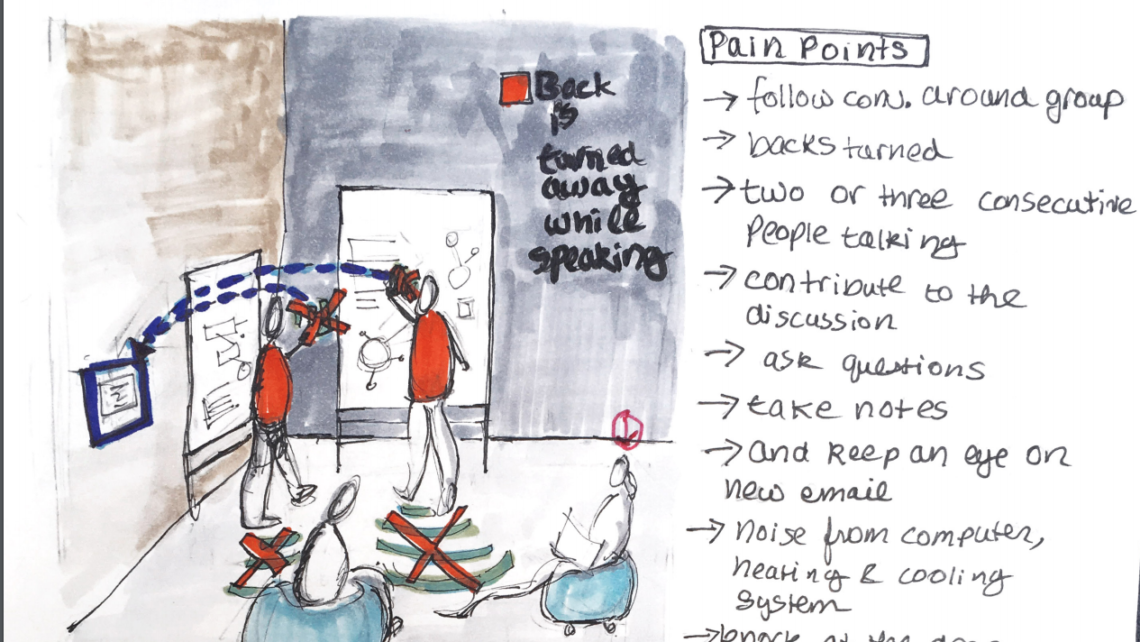 Back
is
turned
away
while
speaking
Pain Points
→ follow conv. around group
→ backs turned
→ two or three consecutive
people talking
→ contribute to the
discussion
→ ask questions
→ take notes
→ and keep an eye on
new email
→ noise from computer,
heating & cooling
system
→ knock at the door